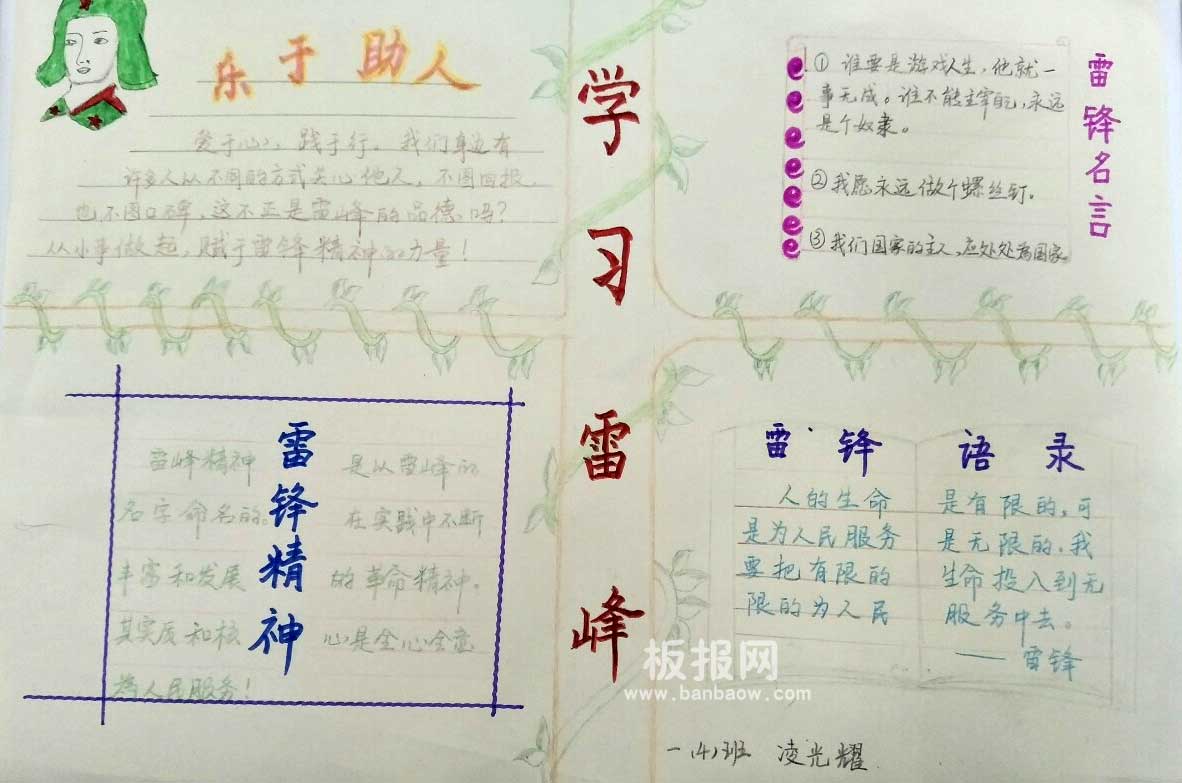 乐于助人
爱于心,践于行。我们身边有
许多人以不同的方式关心他人,不图回报,
也不图口碑,这不正是雷峰的品德吗?
从小事做起,赋于雷锋精神的力量!
学习雷峰
雷锋名言
①谁要是游戏人生,他就一
事无成。谁不能主宰自己,永远
是个奴隶。
②我愿永远做个螺丝钉。
③我们国家的主人,应处处为国家。
雷锋精神
雷峰精神 是从雷峰的
名字命名的。 在实践中不断
丰富和发展 的革命精神。
其实质和核 心是全心全意
为人民服务!
雷锋 语录
人的生命 是有限的,可
是为人民服务 是无限的,我
要把有限的 生命投入到无
限的为人民 服务中去。
——雷锋
板报网
www.banbaow.com
一(4)班 凌光耀